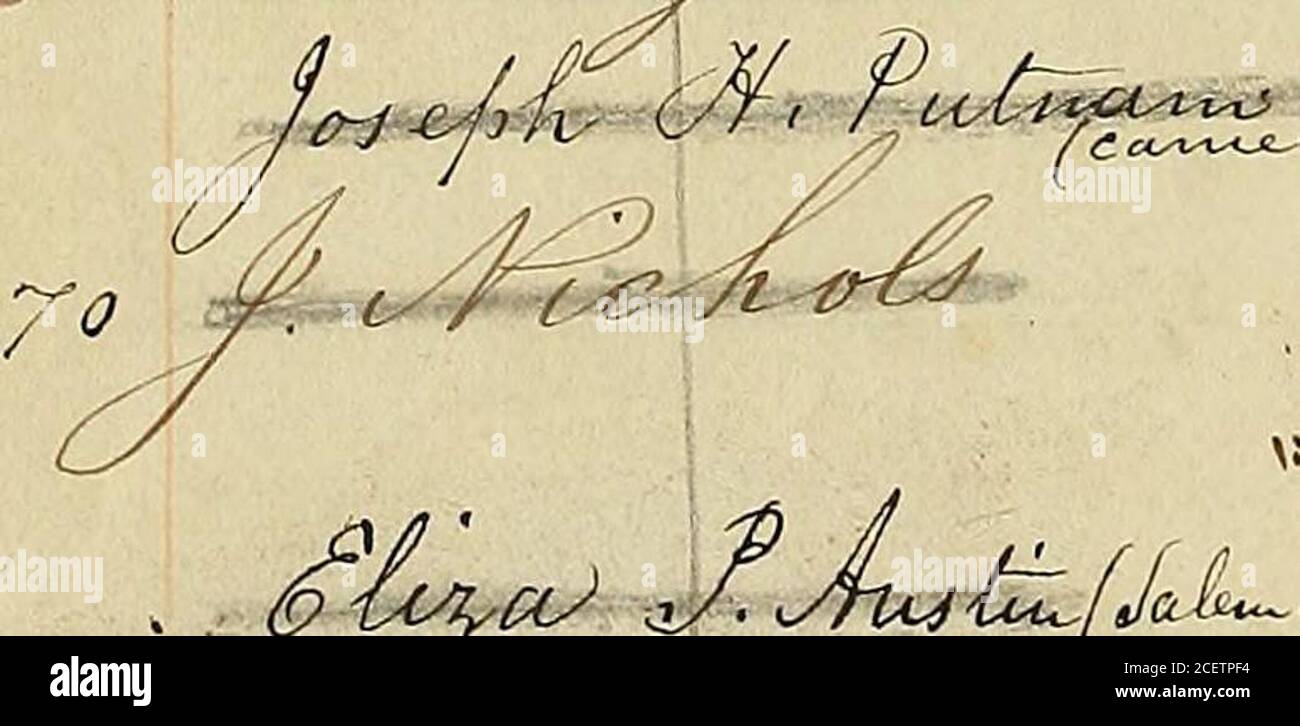 Joseph H. Putnam
(came
70 J. Nichols
Eliza P. Austin (Salem
alamy
Image ID: 2CETPF4
www.alamy.com